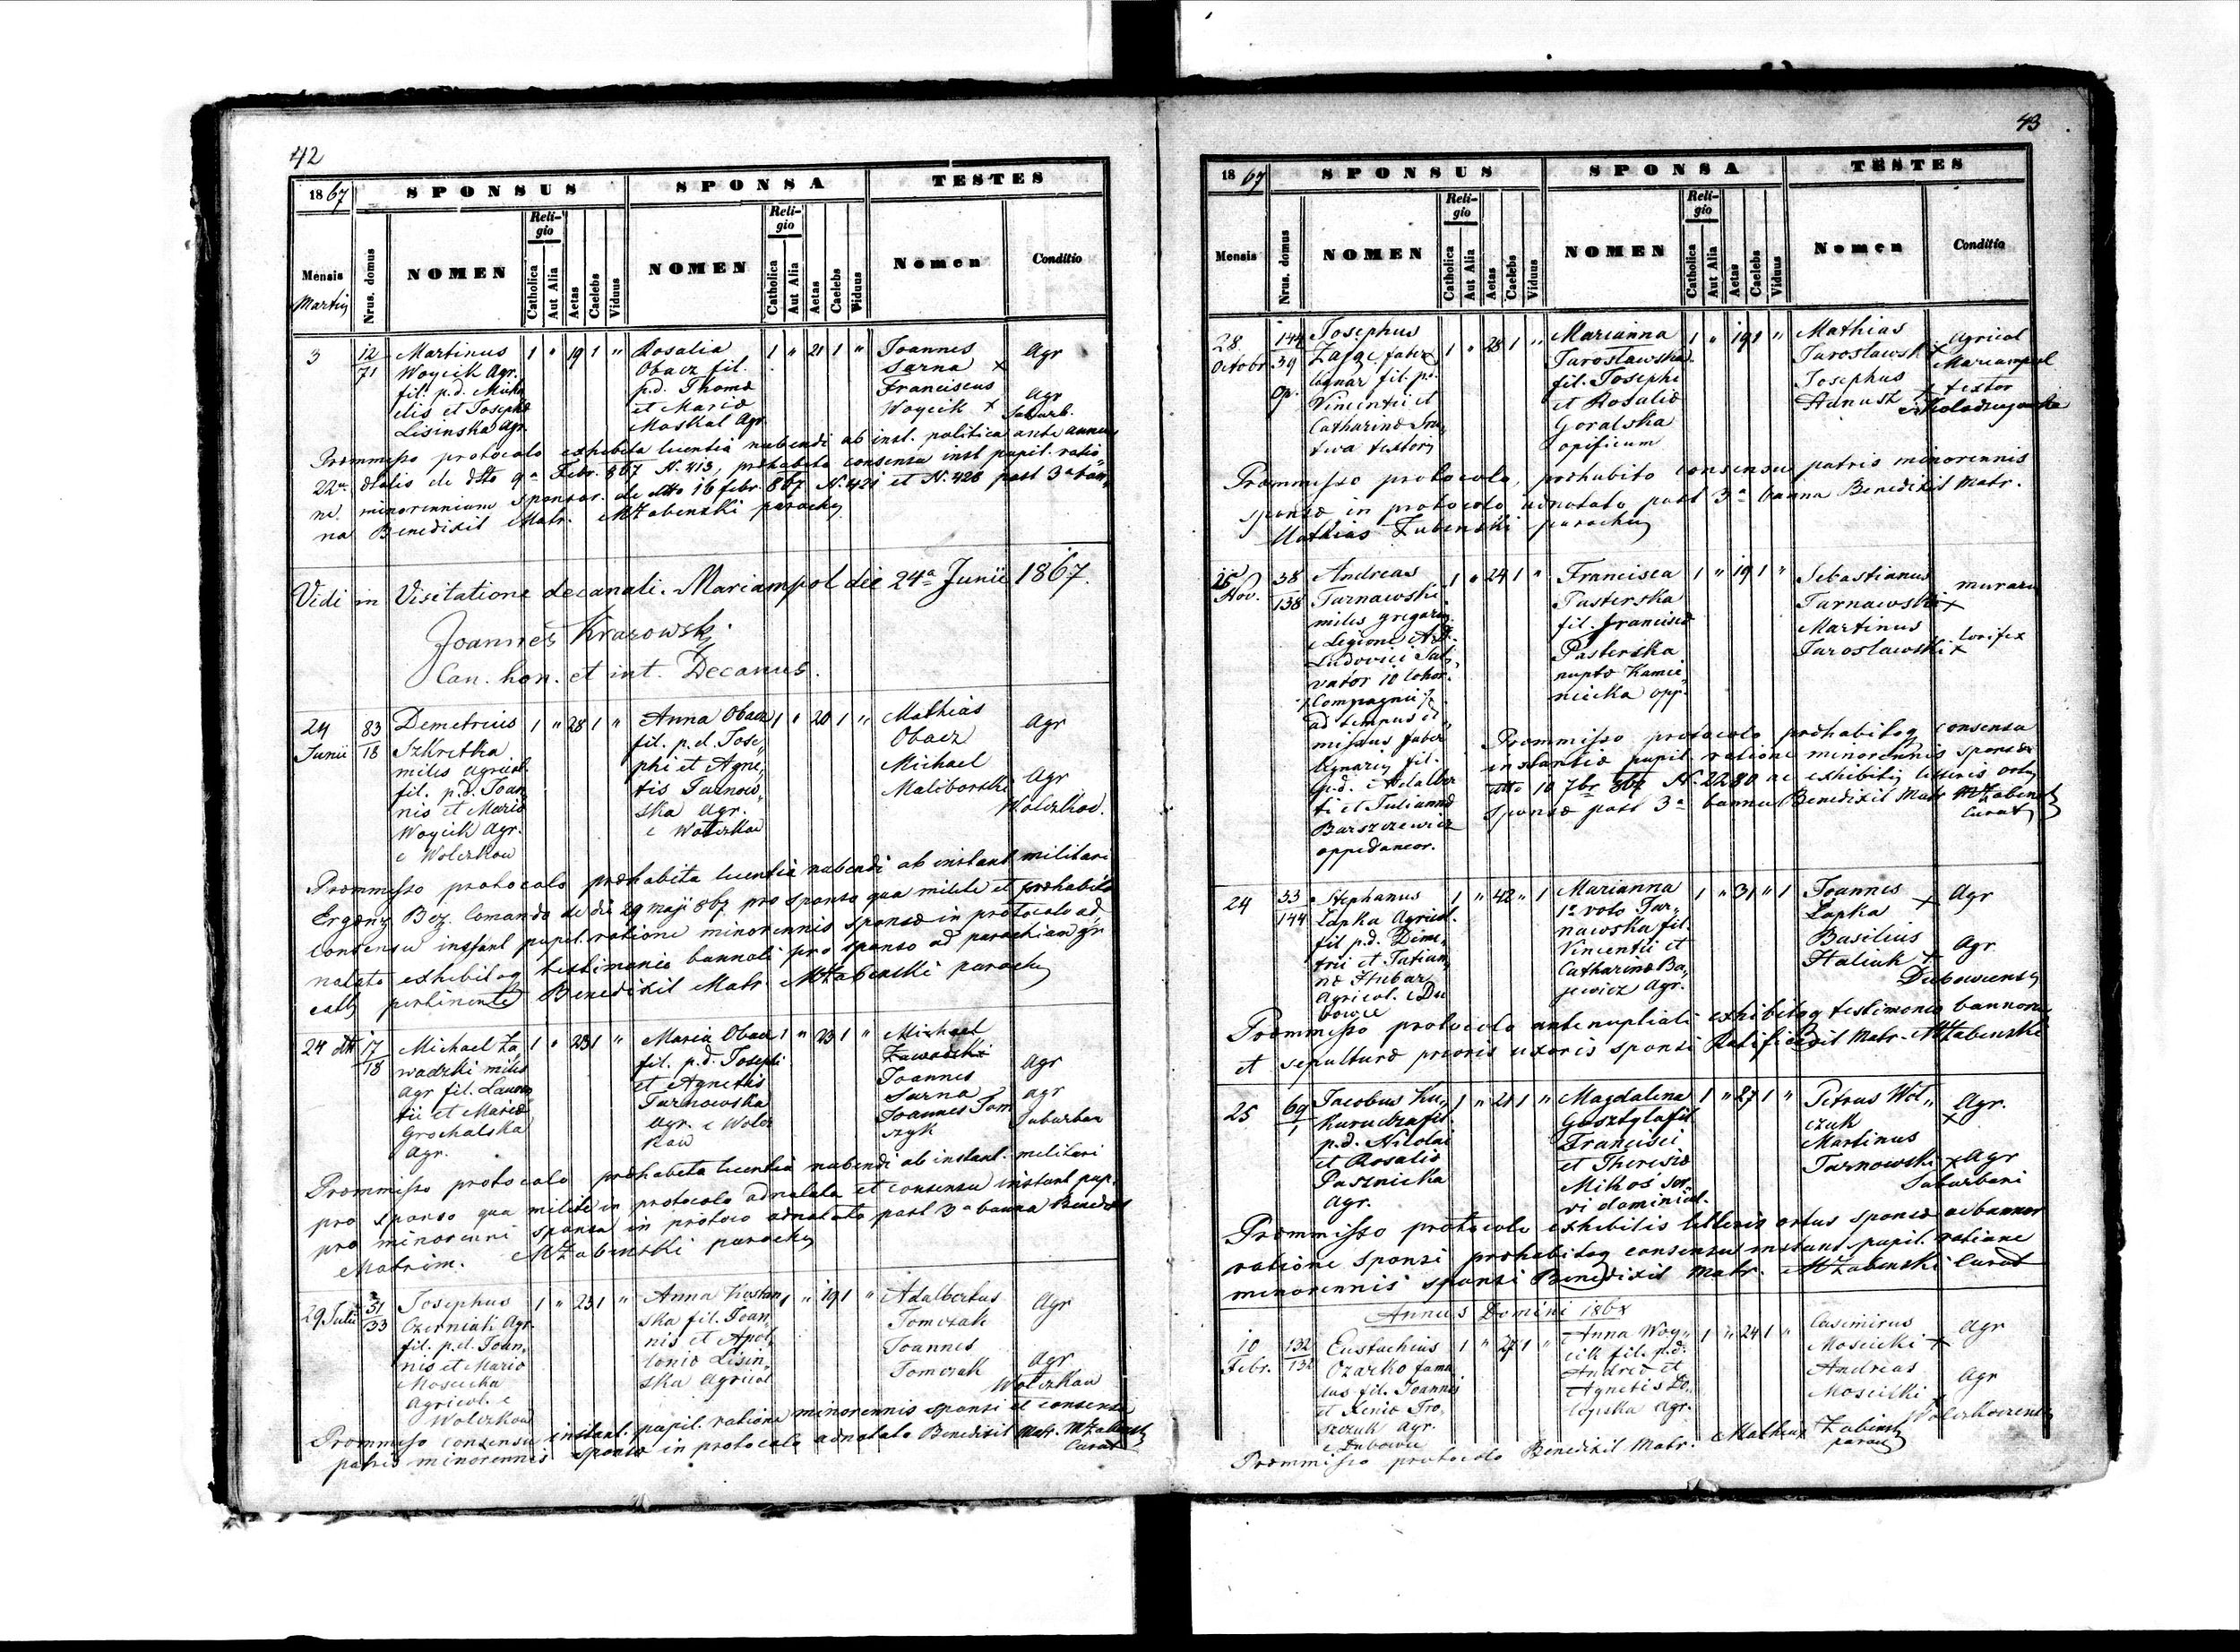 42
1867
SPONSUS
SPONSA
TESTES
Mensis
Martij
Nrus. domus
NOMEN
Religio
Catholica
Aut Alia
Aetas
Caelebs
Viduus
NOMEN
Religio
Catholica
Aut Alia
Aetas
Caelebs
Viduus
Nomen
Conditio
3
12
71
Martinus
Woycik Agr.
fil. p.d. Micha
elis et Josephæ
Lisinska Agr.
1 " 19 1 "
Rosalia
Obacz fil.
p.d. Thomæ
et Mariæ
Moskal Agr.
1 " 21 1 "
Joannes
Sarna x
Franciscus
Woycik x
Agr
Agr
Suburb.
Præmmisso protocolo exhibita licentia nubendi ab inst. politica ante annum
22um ætatis de dtto 9a Febr. 867 N. 413, præhabito consensu inst pupil. ratio
ne minorennium sponsor. de dtto 16 febr. 867 N. 421 et N. 428 post 3a ban
na Benedixit Matr. MŻabenski parochy
Vidi in Visitatione decanali. Mariampol die 24a Junii 1867.
Joannes Krasowski
Can. hon. et int. Decanus.
24
Junii
83
18
Demetrius
Szkretka
miles agricol.
fil. p.d. Joan,,
nis et Mariæ
Woycik Agr.
e Wolczkow
1 " 28 1 "
Anna Obacz
fil. p.d. Jose,,
phi et Agne,,
tis Tarnow,,
ska Agr.
e Wolczkow
1 " 20 1 "
Mathias
Obacz
Michael
Maliborski
Agr
Agr
Wolczkow.
Præmmisso protocolo præhabita licentia nubendi ab instant militari
Ergenz Bez. Comando de die 29 maji 867 pro sponso qua milite et præhabito
consensu instant pupil. ratione minorennis sponsæ in protocolo ad,,
natato exhibitoq testimonio bannali pro sponso ad parochiam gr
cath pertinente Benedixit Matr. MŻabenski parochy
24 dtt
17
18
Michael Za,,
wadzki miles
Agr fil. Lauren
tii et Mariæ
Grochalska
Agr.
1 " 23 1 "
Maria Obacz
fil. p.d. Josephi
et Agnetis
Tarnowska
Agr. e Wolcz
kow
1 " 23 1 "
Michael
Zawadzki
Joannes
Sarna
Joannes Tom
czyk
Agr
Agr
Suburban
Præmmisso protocolo præhabita licentia nubendi ab instant. militari
pro sponso qua milite in protocolo adnatata et consensu instant pup.
pro minorenni sponsa in protoco adnatato post 3a banna Benedixit
Matrim. MŻabenski parochy
29 Julii
51
33
Josephus
Czerniak Agr.
fil. p.d. Joan,,
nis et Mariæ
Moscicka
Agricol. e
Wolczkow
1 " 23 1 "
Anna Kostan
ska fil. Joan,,
nis et Apol,,
loniæ Lisin,,
ska Agricol
1 " 19 1 "
Adalbertus
Tomczak
Joannes
Tomczak
Agr
Agr
Wolczkow
Præmmiso consensu instant. pupil. ratione minorennis sponsi et consensu
patris minorennis sponsæ in protocolo adnatato Benedixit Matr. MŻabensky
Curat
43
1867
SPONSUS
SPONSA
TESTES
Mensis
Nrus. domus
NOMEN
Religio
Catholica
Aut Alia
Aetas
Caelebs
Viduus
NOMEN
Religio
Catholica
Aut Alia
Aetas
Caelebs
Viduus
Nomen
Conditio
28
Octobr
144
39
Op.
Josephus
faber
lignar fil. p.d.
Vincentii et
Catharinæ
textorij
1 " 28 1 "
Marianna
Jaroslawska
fil. Josephi
et Rosaliæ
Goralska
opificum
1 " 19 1 "
Mathias
Jaroslawski x
Josephus
Hanusz x
Agricol
Mariampol
textor
Præmmisso protocolo, præhabito consensu patris minorennis
sponsæ in protocolo adnotato post 3a banna Benedixit Matr.
Mathias Żabenski parochus
Nov.
38
138
Andreas
Tarnawski
miles gregariy
e Legione Ard.
Ludovici Sal,,
vator 10 Cohor.
Compagnii
ad tempus di,,
missus faber
lignariy fil.
p.d. Adalber
ti et Juliannæ
Barszczewicz
oppidaneor.
1 " 24 1 "
Francisca
Pasterska
fil. Franciscæ
Pasterska
nuptæ Kamie,,
niecka opp.
1 " 19 1 "
Sebastianus
Tarnawski x
Martinus
Jaroslawski x
murari
Præmmisso protocolo præhabitoq consensu
instantiæ pupil. ratione minorennis sponsæ
dtto 10 7br 867 N. 2280 ac exhibitis litteris orty
sponsæ post 3a banna Benedixit Matr. MŻabensky
Curaty
24
53
144
Stephanus
Łapka Agricol.
fil p.d. Deme,,
trii et Tatian,,
næ Hubar
Agricol. e Du
bowce
1 " 42 " 1
Marianna
1o voto Tar,,
nawska fil.
Vincentii et
Catharinæ Ba,,
jewicz Agr.
1 " 31 " 1
Joannes
Łapka x
Basilius
Haliuk x
Agr
Agr
Dubowiensy
Præmmisso protocolo antenuptiali exhibitoq testimonio bannorum
et sepulturæ prioris uxoris sponsi Matr. MŻabenski
25
69
1
Jacobus Ku,,
kurudza fil.
p.d. Nicolai
et Rosaliæ
Pasznicka
Agr.
1 " 21 1 "
Magdalena
Gosztyla fil.
Francisci
et Theresiæ
Mikos ser,,
vi dominical.
1 " 27 1 "
Petrus Wol,,
czuk x
Martinus
Tarnowski x
Agr.
Agr
Suburbani
Præmmisso protocolo exhibitis litteris ortus sponsæ ac bannor
ratione sponsi præhabitoq consensu instant. pupil. ratione
minorennis sponsi Benedixit Matr. MŻabenski Curat
Annus Domini 1868
10
Febr.
132
132
Eustachius
Ozarko famu
lus fil. Joannis
et Xeniæ Pro,,
szczuk Agr.
e Dubowce
1 " 27 1 "
Anna Woy,,
cik fil. p.d.
Andreæ et
Agnetis
Agr.
1 " 24 1 "
Casimirus
Moscicki x
Andreas
Moscicki x
Agr
Agr
Wolczkoviensy
Præmmisso protocolo Benedixit Matr. Matheus Żabensky
parochy